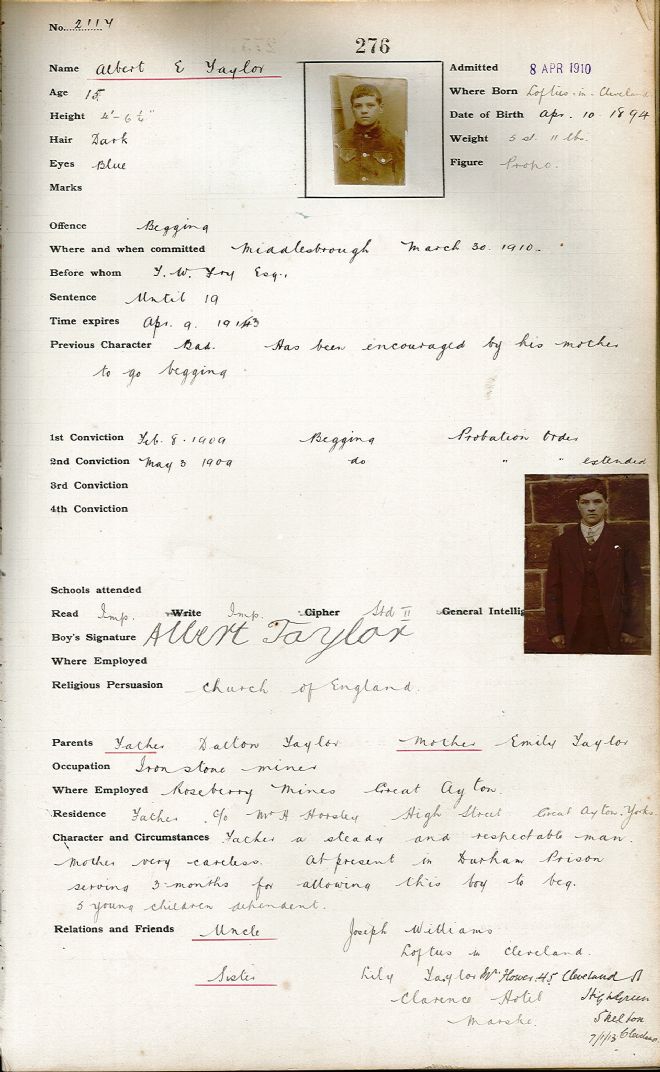 No. 2114
276
Name Albert E Taylor
Admitted 8 APR 1910
Age 15
Where Born Loftus-in-Cleveland
Height 4'-6¼"
Date of Birth Apr. 10 1894
Hair Dark
Weight 5 st. 11 lbs.
Eyes Blue
Figure Propo.
Marks
Offence Begging
Where and when committed Middlesbrough March 30. 1910.
Before whom T. W. Fry Esq.
Sentence Until 19
Time expires Apr. 9. 1913
Previous Character Bad. Has been encouraged by his mother
to go begging
1st Conviction Feb. 8. 1909 Begging Probation Order
2nd Conviction May 3 1909 do " " extended
3rd Conviction
4th Conviction
Schools attended
Read Imp. Write Imp. Cipher Std II General Intellig
Boy's Signature Albert Taylor
Where Employed
Religious Persuasion Church of England.
Parents Father Dalton Taylor Mother Emily Taylor
Occupation Ironstone miner
Where Employed Roseberry Mines Great Ayton.
Residence Father c/o Mr H Horsley High Street Great Ayton. Yorks.
Character and Circumstances Father a steady and respectable man.
Mother very careless. At present in Durham Prison
serving 3 months for allowing this boy to beg.
5 young children dependent.
Relations and Friends Uncle Joseph Williams
Loftus in Cleveland.
Sister Lily Taylor Mrs 45 Cleveland St
Clarence Hotel High Green
Marske. Skelton
7/1/13 Cleveland